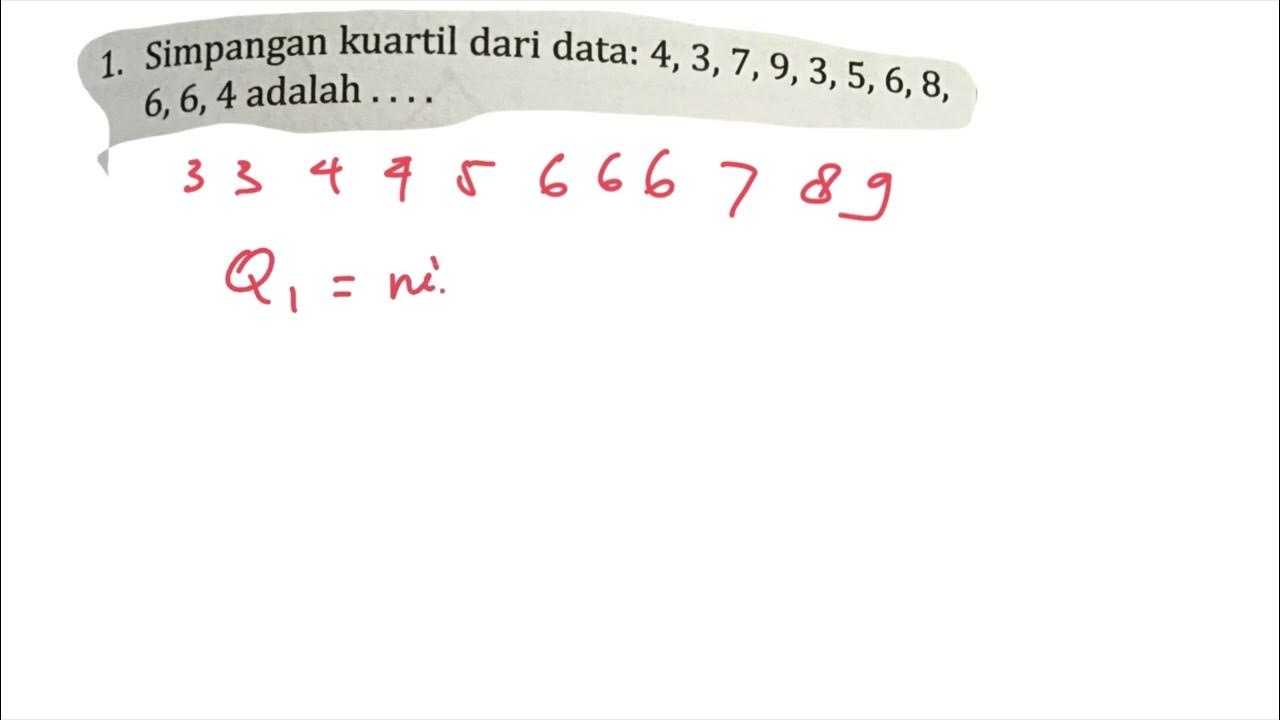 1. Simpangan kuartil dari data: 4, 3, 7, 9, 3, 5, 6, 8,
6, 6, 4 adalah . . . .
3 3 4 4 5 6 6 6 7 8 9
Q₁ = ni.